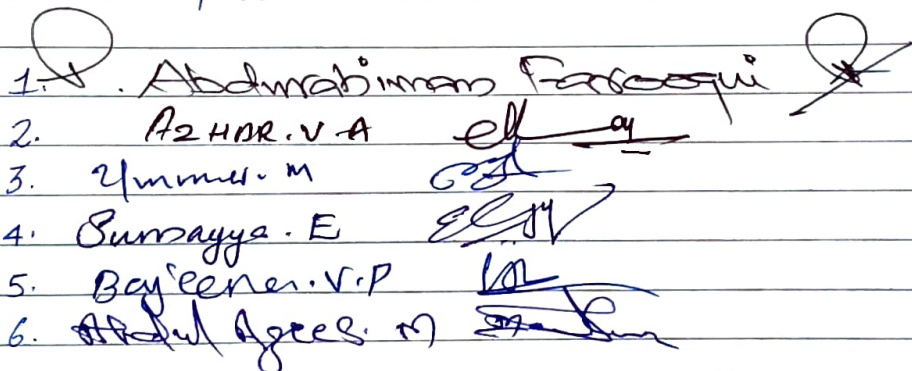 1. P. Abdurahiman Farooqui
2. AZHAR.V.A
3. Ummer.M
4. Sumayya.E
5. Bajeena.V.P
6. Abdul Azees.M